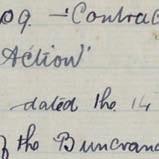 09. - 'Contrac
Action'
dated the 14
f the Buncrana